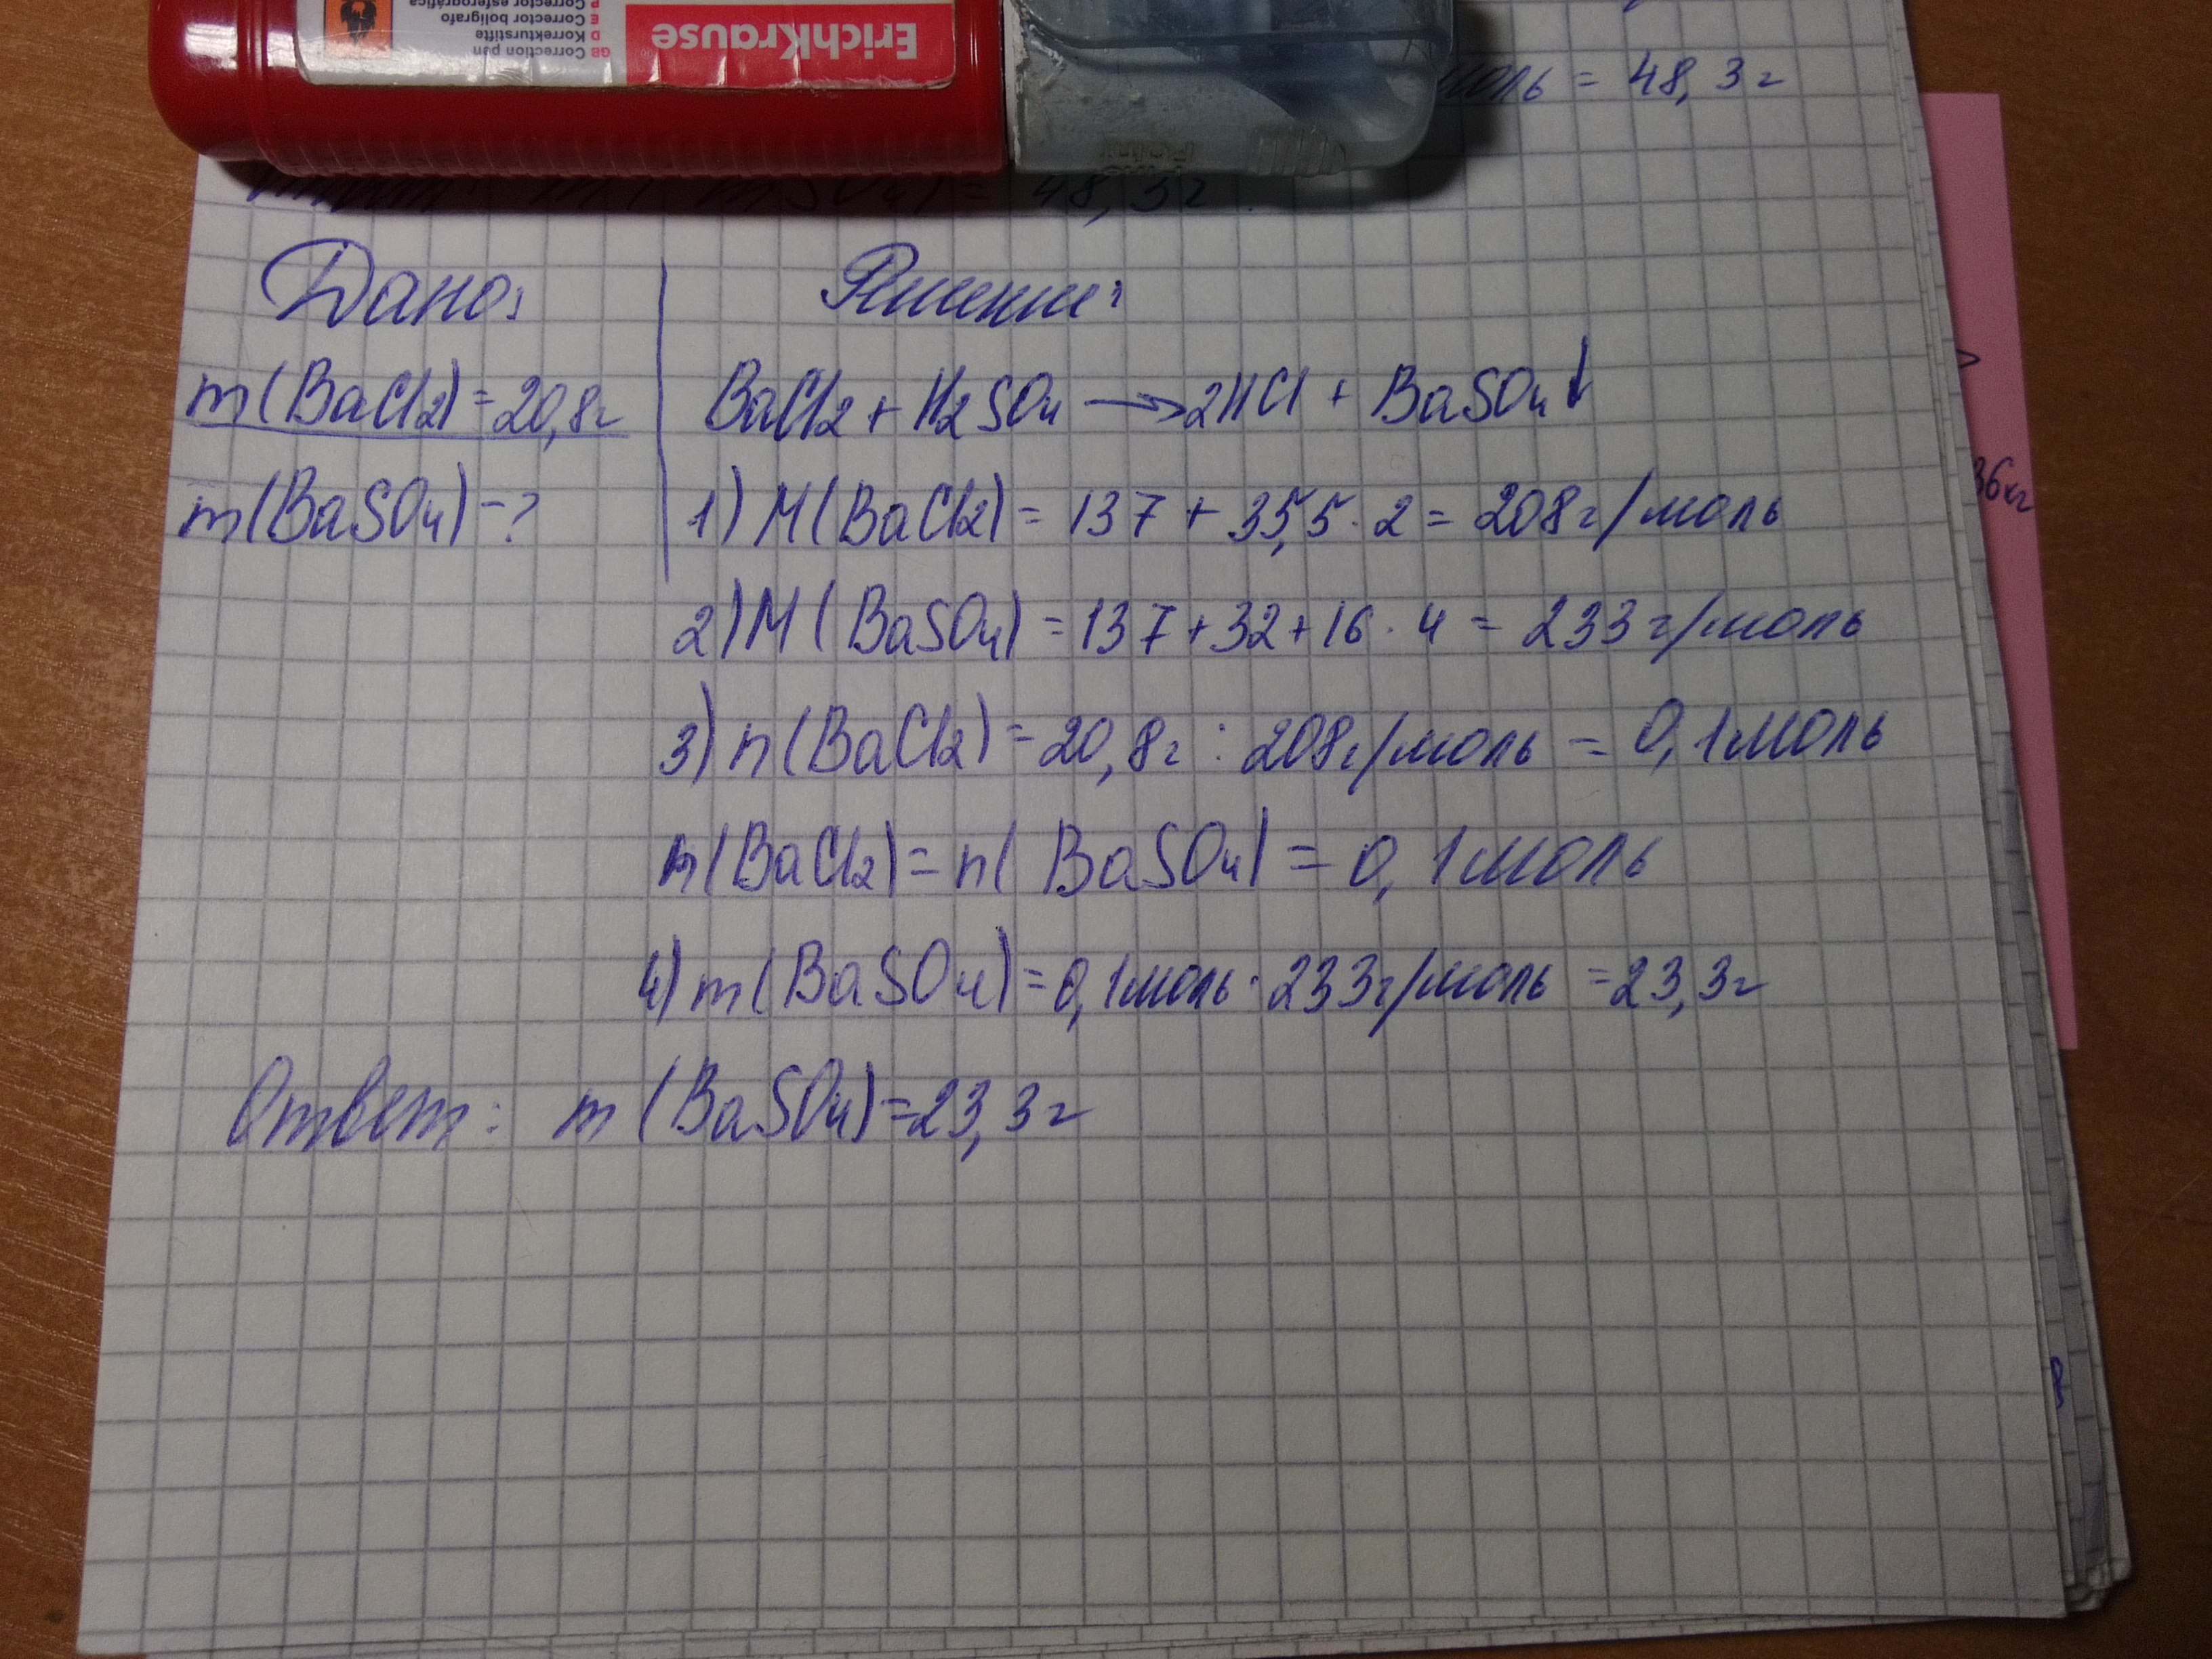 ErichKrause
GB Correction pen
D Korrekturstifte
E Corrector bolígrafo
P Corrector esferográfica
моль = 48,3 г
mSO4) = 48,3г.
Дано:
m(BaCl2)=20,8г
m(BaSO4)-?
Решение:
BaCl2 + H2SO4 → 2HCl + BaSO4↓
1) M(BaCl2) = 137 + 35,5 · 2 = 208г/моль
2) M(BaSO4) = 137+32+16 · 4 = 233г/моль
3) n(BaCl2) = 20,8г : 208г/моль = 0,1моль
n(BaCl2) = n(BaSO4) = 0,1моль
4) m(BaSO4) = 0,1моль · 233г/моль = 23,3г
Ответ: m(BaSO4)=23,3г
36кг